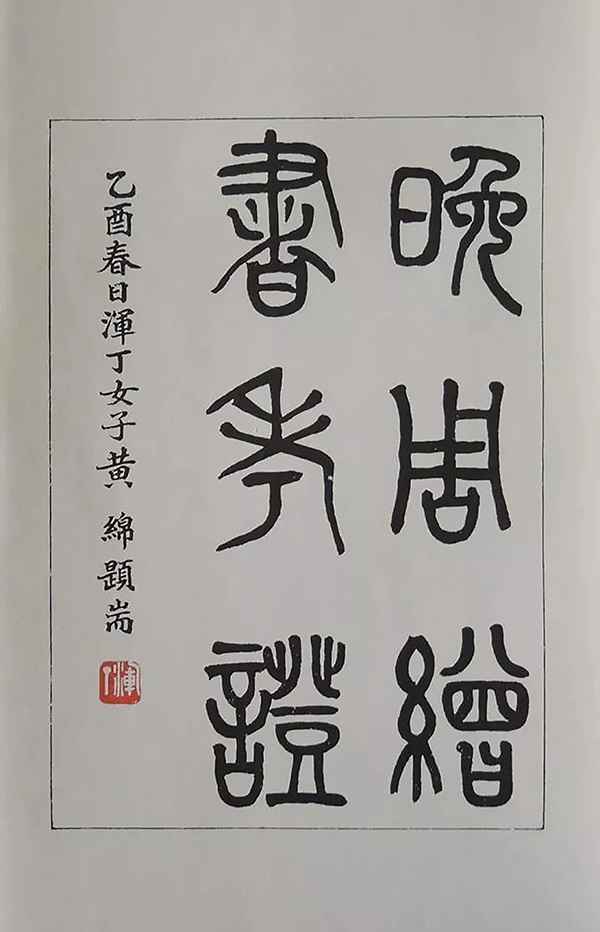 晚周繒
書考證
乙酉春日渾丁女子黃綿題耑
渾丁